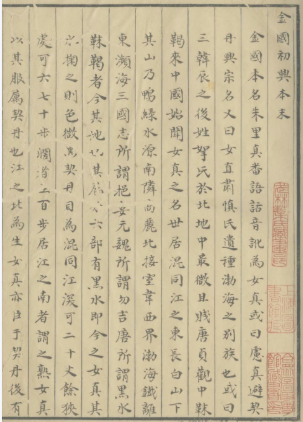 金國初興本末
金國本名朱里真番語訛為女真或曰慮真避契
丹興宗名又曰女直肅慎氏遺種渤海之別族也或曰
三韓辰之後姓拏氏於北地中最微且賤唐貞觀中靺
鞨來中國始聞女真之名世居混同江之東長白山下
其山乃鴨綠水源南隣高麗北接室韋西界渤海鐵離
東瀕海三國志所謂挹婁元魏所謂勿吉唐所謂黑水
靺鞨者今其地也其屬分六部有黑水部即今之女真其
水掬之則色微黑契丹目為混同江深可二十丈餘狹
處可六七十步濶者二百步居江之南者謂之熟女真
以其服屬契丹也江之北為生女真亦臣于契丹後有